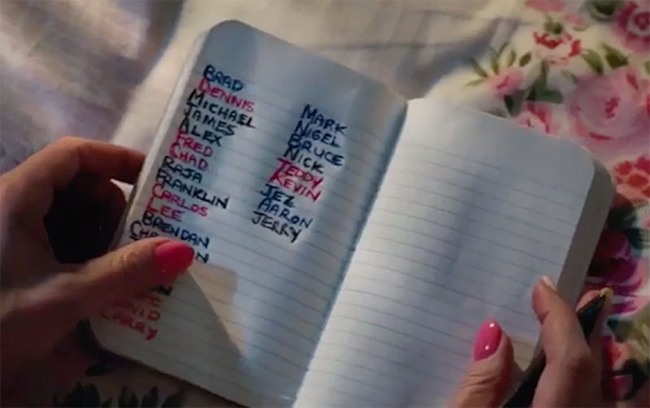 BRAD
DENNIS
MICHAEL
JAMES
ALEX
FRED
CHAD
RAJA
FRANKLIN
CARLOS
LEE
BRENDAN
LARRY
MARK
NIGEL
BRUCE
MICK
TEDDY
KEVIN
JEZ
AARON
JERRY